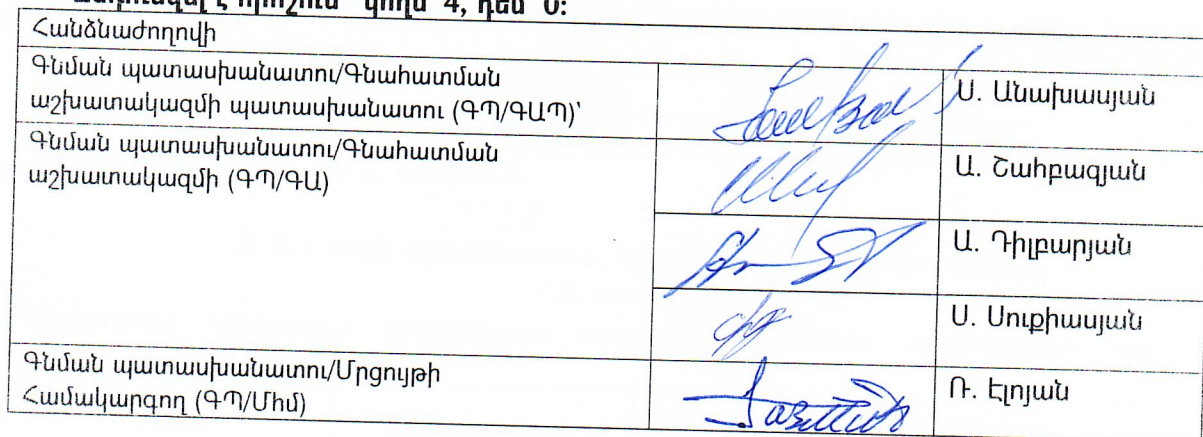 որոշում՝ կողմ՝ 4, դեմ՝ 0:
Հանձնաժողովի
Գնման պատասխանատու/Գնահատման
աշխատակազմի պատասխանատու (ԳՊ/ԳԱՊ)՝
Ս. Անախասյան
Գնման պատասխանատու/Գնահատման
աշխատակազմի (ԳՊ/ԳԱ)
Ա. Շահբազյան
Ա. Դիլբարյան
Ս. Սուքիասյան
Գնման պատասխանատու/Մրցույթի
Համակարգող (ԳՊ/Մհմ)
Ռ. Էլոյան